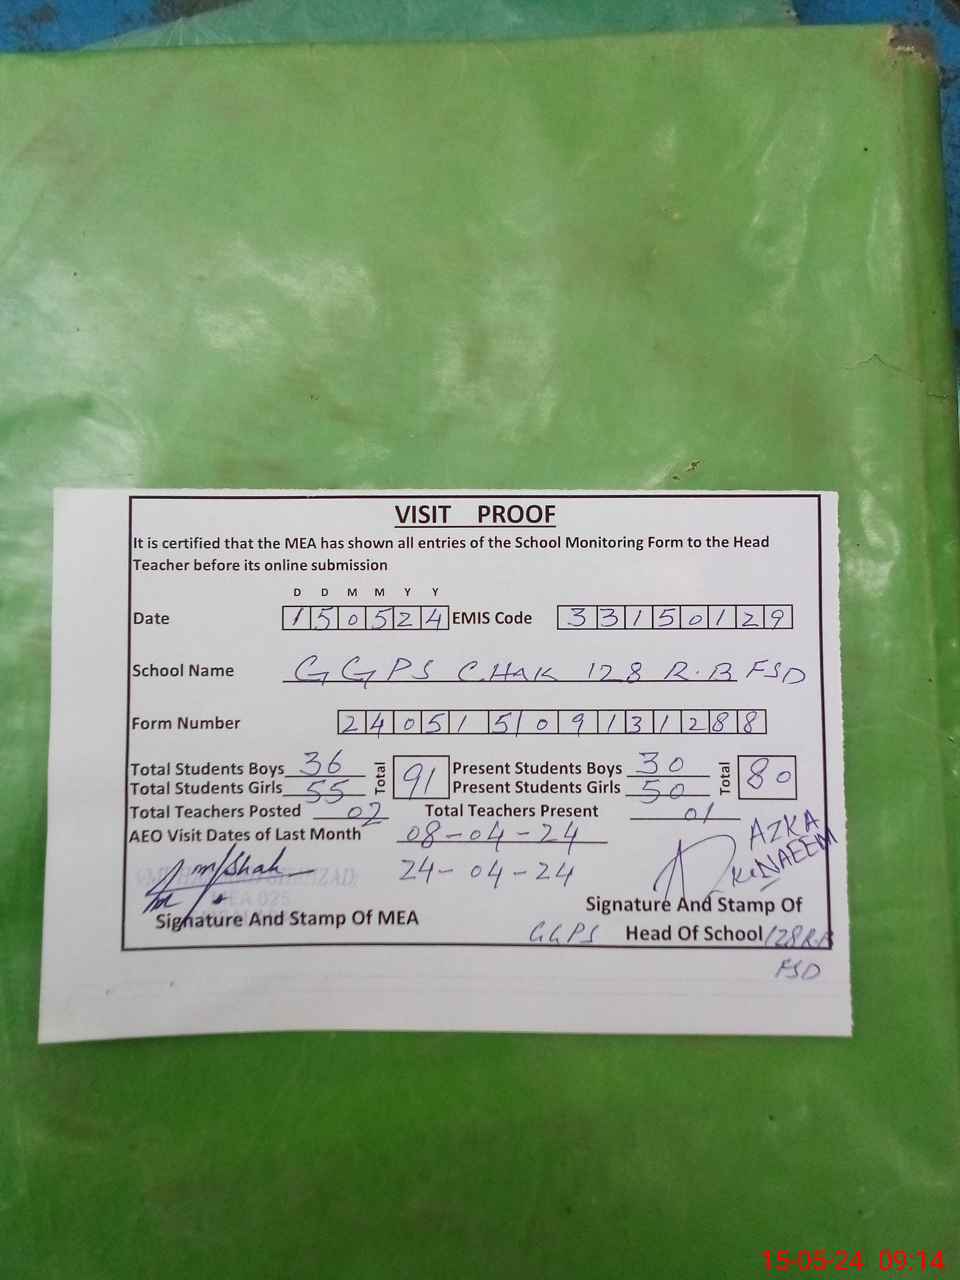 VISIT PROOF
It is certified that the MEA has shown all entries of the School Monitoring Form to the Head
Teacher before its online submission
D D M M Y Y
Date 150524 EMIS Code 33150129
School Name GGPS CHAK 128 R.B FSD
Form Number 24051509131288
Total Students Boys 36 Total 91 Present Students Boys 30 Total 80
Total Students Girls 55 Present Students Girls 50
Total Teachers Posted 02 Total Teachers Present 01
AEO Visit Dates of Last Month 08-04-24
24-04-24
AZKA
NAEEM
MEA 025
Signature And Stamp Of MEA
Signature And Stamp Of
GGPS Head Of School 128 R.B
FSD
15-05-24 09:14